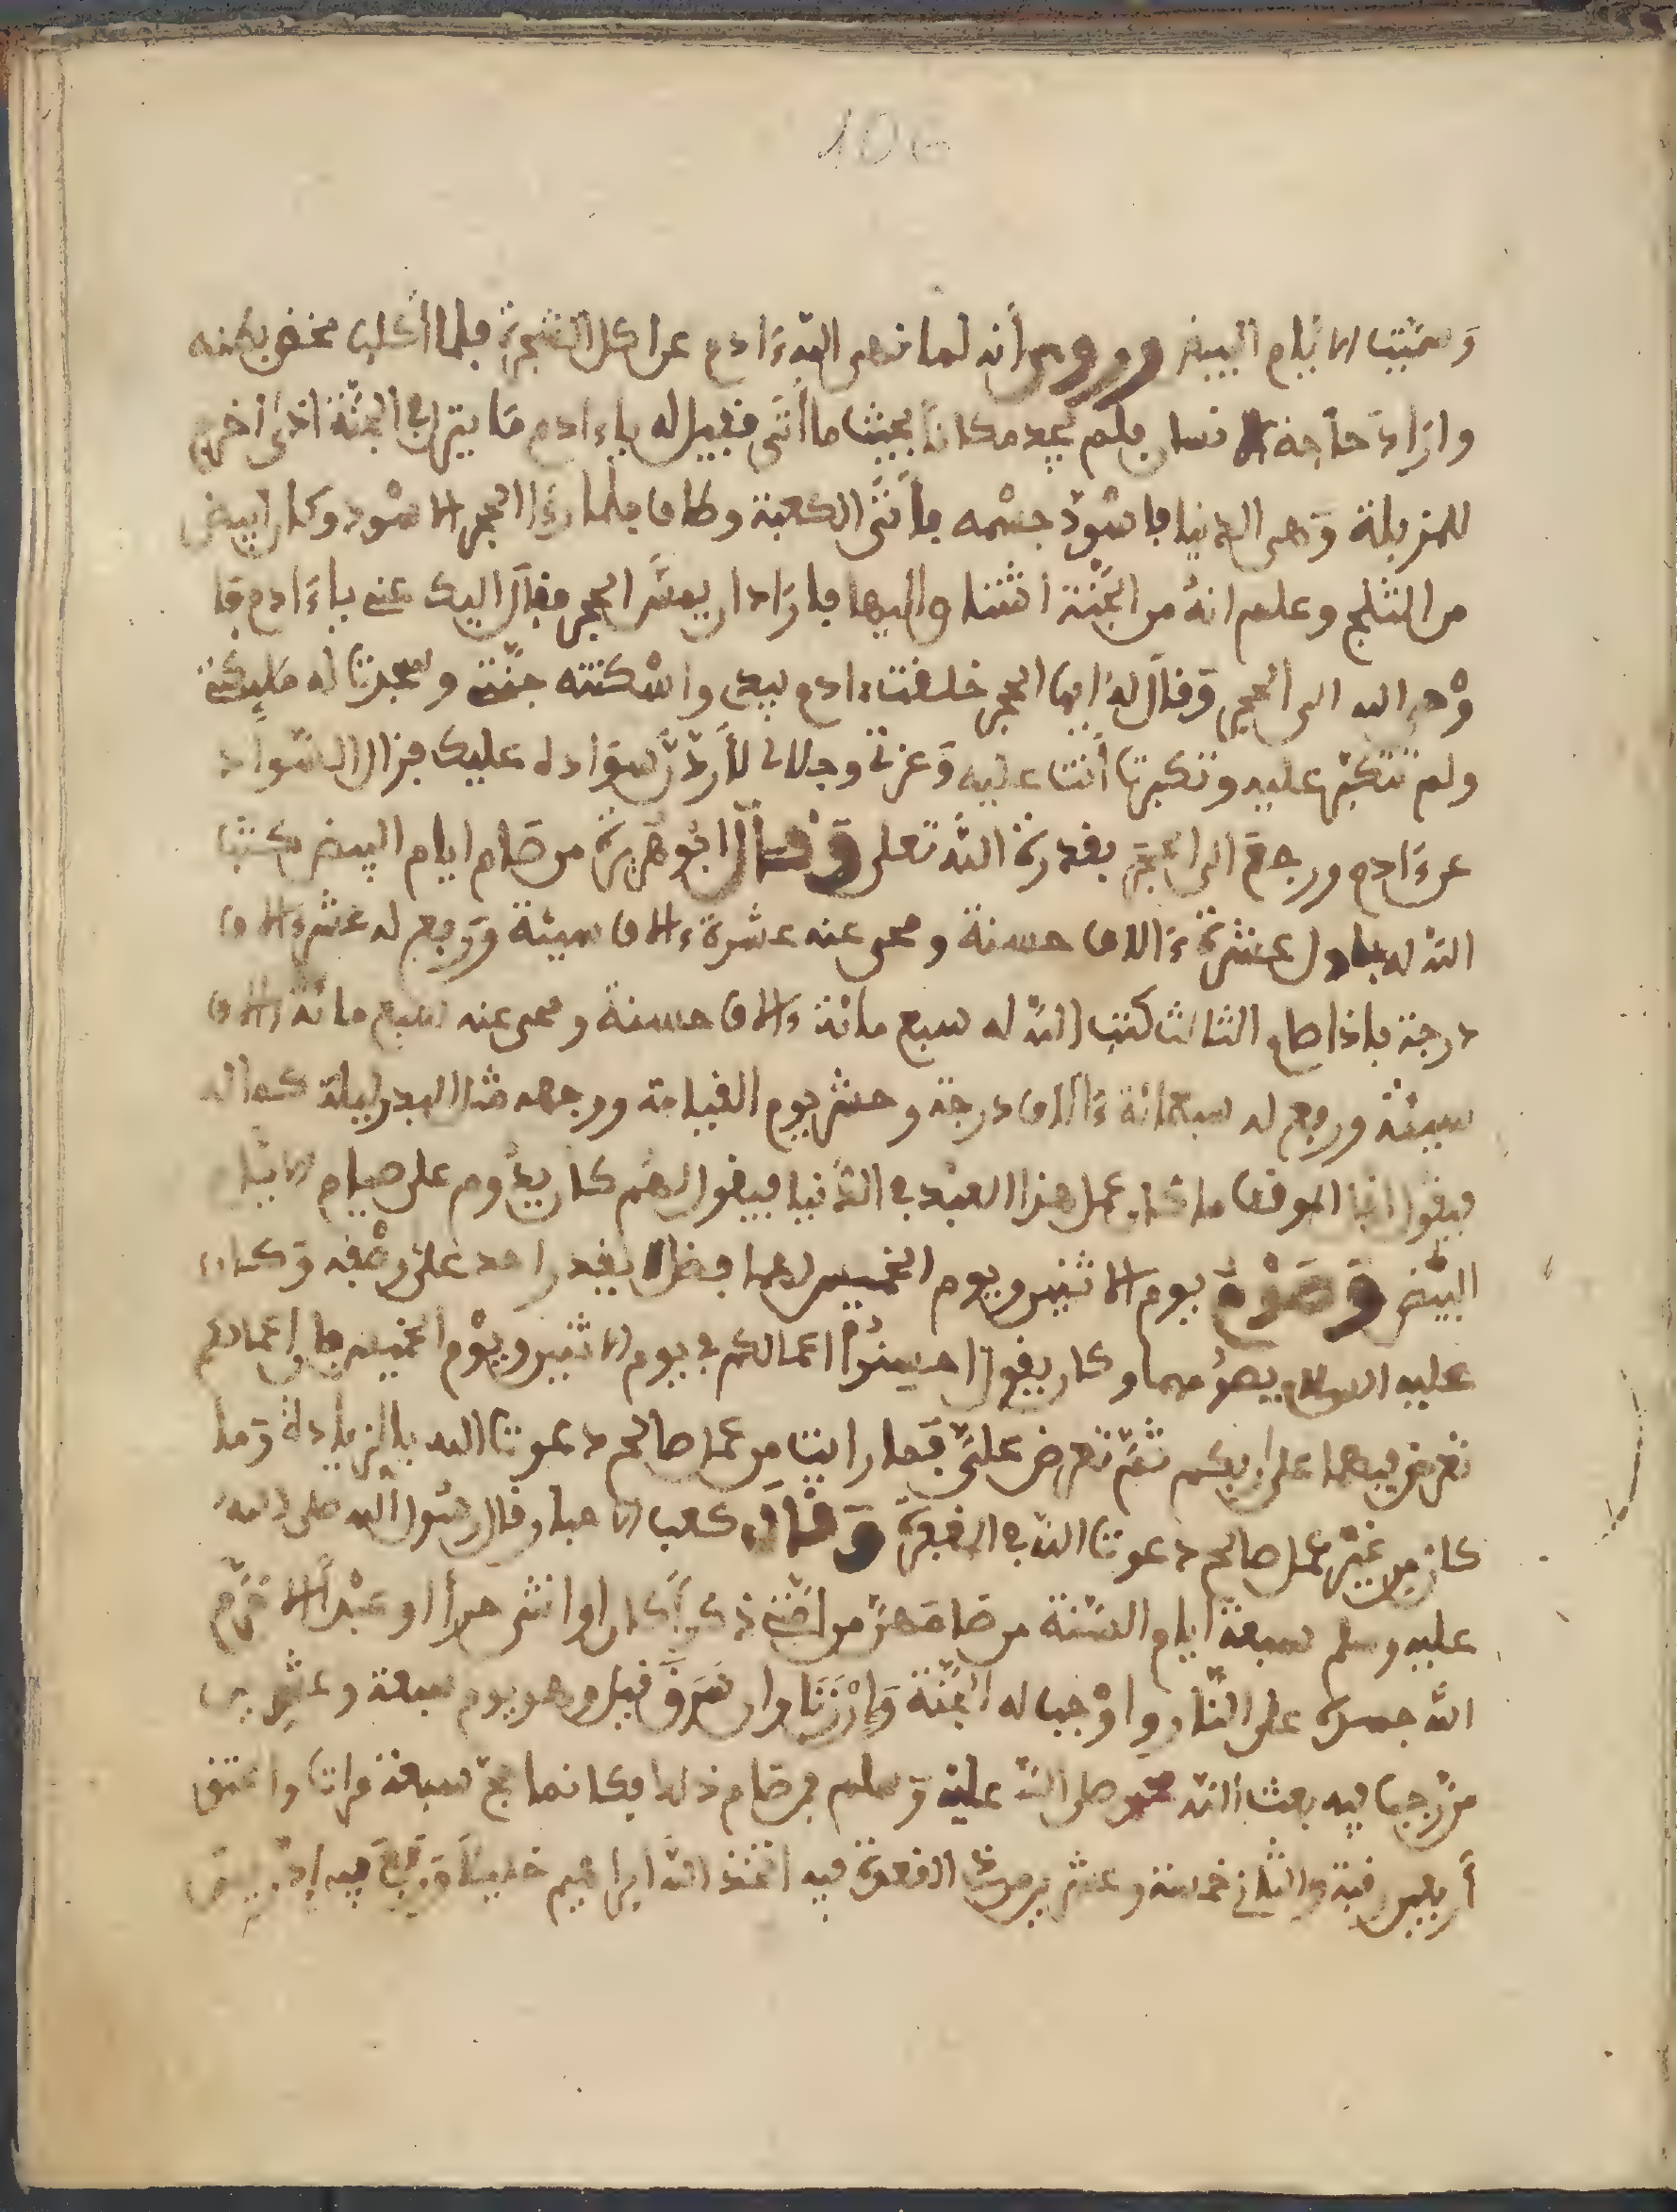 106
وسميت الايام البيض وروى أنه لما نهى الله ءادم عن اكل الشجرة فلما أكل مخض بطنه
واراد حاجة الانسان فلم يجد مكانا بحيث ما أتى فقيل له ياءادم ما يترك في الجنة اذى اخرج
للمزبلة وهى الدنيا فاسود جسمه فأتى الكعبة وطاف فلما رءا الحجر الاسود وكان ابيض
من الثلج وعلم انه من الجنة اشتاق اليها فاراد ان يمس الحجر فقال اليك عنى ياءادم فا
وحى الله الى الحجر وقال له ايها الحجر خلقت ءادم بيدى واسكنته جنتى وسجدت له ملئكتى
ولم تتكبر عليه وتكبرت أنت عليه وعزتى وجلالى لأردن سواده عليك فزال السواد
عن ءادم ورجع الى الحجر بقدرة الله تعلى وقال ابو هريرة من صام ايام البيض كتب
الله له باول عشرة ءالاف حسنة ومحى عنه عشرة ءالاف سيئة ورفع له عشرة ءالاف
درجة فاذا صام الثالث كتب الله له سبع مائة ءالاف حسنة ومحى عنه سبع مائة ءالاف
سيئة ورفع له سبعمائة ءالاف درجة وحشر يوم القيامة ووجهه مثل البدر ليلة كماله
فيقول اهل الموقف ما كان عمل هذا العبد في الدنيا فيقول لهم كان يدوم على صيام الايام
البيض وصوم يوم الاثنين ويوم الخميس لهما فضل لا يقدر احد على وصفه وكان
عليه السلام يصومهما وكان يقول احسنوا اعمالكم في يوم الاثنين ويوم الخميس فان اعمالكم
تعرض فيهما على ربكم ثم تعرض على فما رايت من عمل صالح دعوت الله بالزيادة وما
كان من غير عمل صالح دعوت الله في المغفرة وقال كعب الاحبار قال رسول الله صلى الله
عليه وسلم سبعة ايام السنة من صامهن من امتى ذكرا كان او انثى حرا او عبدا الا حرم
الله جسده على النار واوجب له الجنة وان زنا وان سرق قيل وهو يوم سبعة وعشرين
من رجب فيه بعث الله محمد صلى الله عليه وسلم فمن صام ذلك فكانما حج سبعة مرات واعتق
أربعين رقبة والثانى خمسة وعشرين من ذي القعدة فيه اتخذ الله ابراهيم خليلا ورفع فيه إدريس